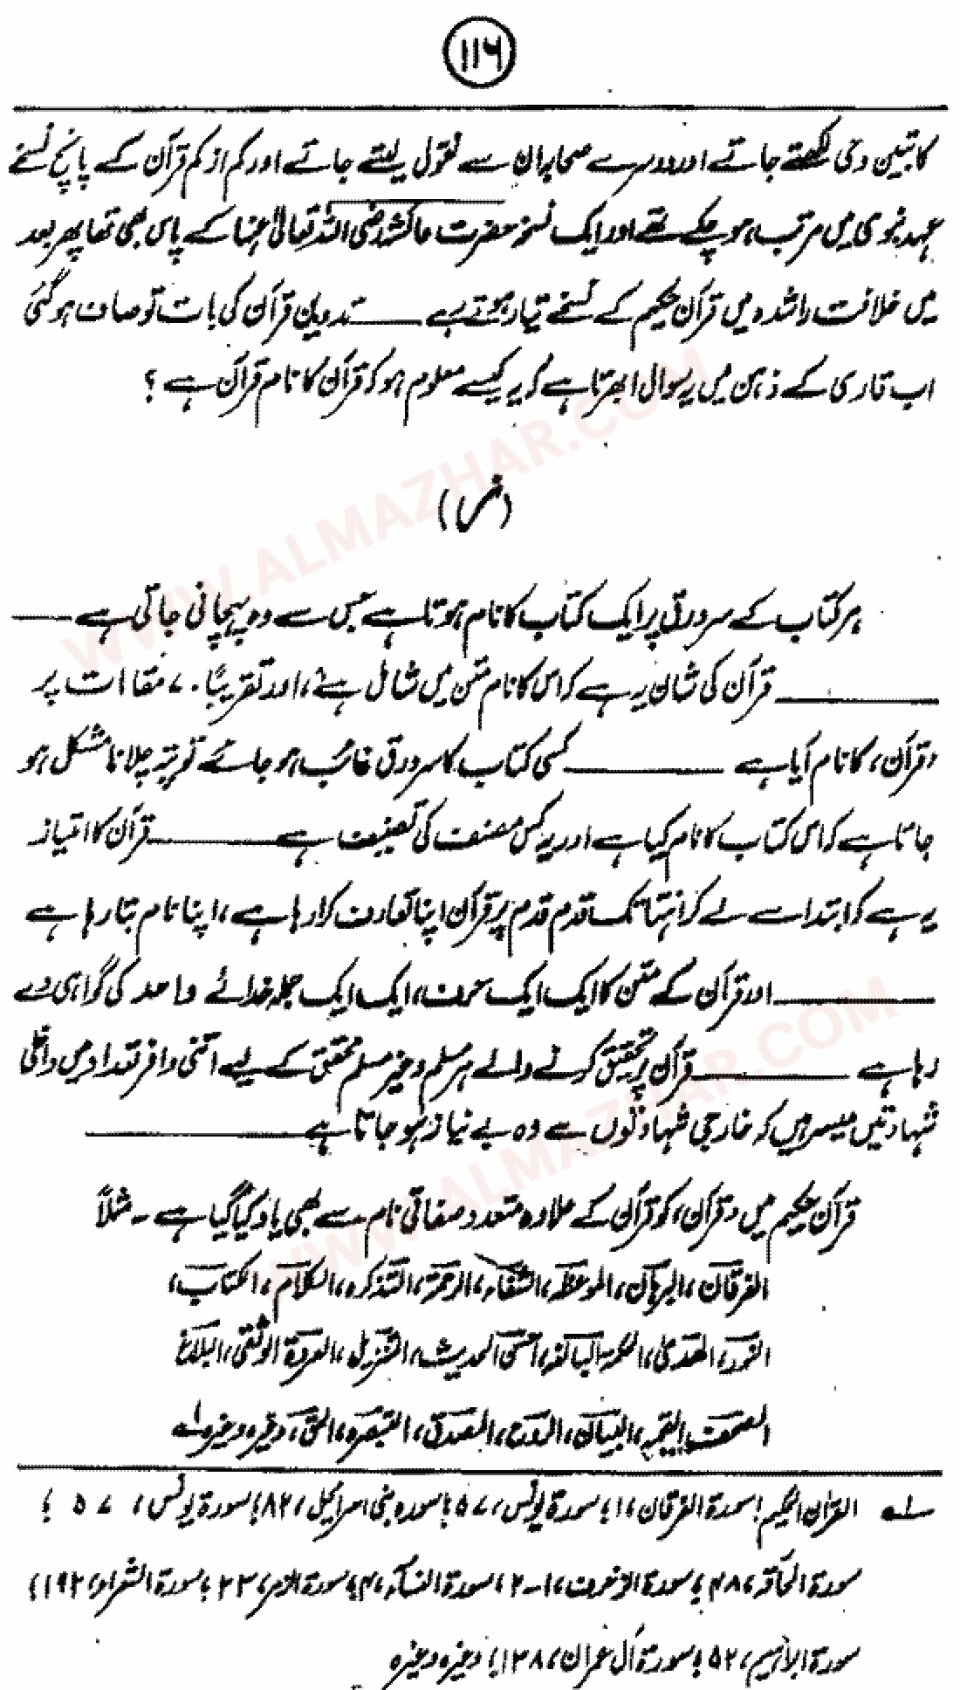 ۱۱۶
کاتبین وحی لکھتے جاتے اور دوسرے صحابہ ان سے نقول لیتے جاتے اور کم از کم قرآن کے پانچ نسخے
عہد نبوی میں مرتب ہو چکے تھے اور ایک نسخہ حضرت عائشہ رضی اللہ تعالیٰ عنہا کے پاس بھی تھا پھر بعد
میں خلافت راشدہ میں قرآن حکیم کے نسخے تیار ہوتے رہے ــــــ تدوین قرآن کی بات تو صاف ہو گئی
اب قاری کے ذہن میں یہ سوال ابھرتا ہے کہ یہ کیسے معلوم ہو کہ قرآن کا نام قرآن ہے ؟
ہر کتاب کے سرورق پر ایک کتاب کا نام ہوتا ہے جس سے وہ پہچانی جاتی ہے ــــــ
ــــــ قرآن کی شان یہ ہے کہ اس کا نام متن میں شامل ہے، اور تقریبًا ۷۰ مقامات پر
'قرآن' کا نام آیا ہے ــــــ کسی کتاب کا سرورق غائب ہو جائے تو پتہ چلانا مشکل ہو
جاتا ہے کہ اس کتاب کا نام کیا ہے اور یہ کس مصنف کی تصنیف ہے ــــــ قرآن کا امتیاز
یہ ہے کہ ابتدا سے لے کر انتہا تک قدم قدم پر قرآن اپنا تعارف کرا رہا ہے، اپنا نام بتا رہا ہے
ــــــ اور قرآن کے متن کا ایک ایک حرف، ایک ایک جملہ خدائے واحد کی گواہی دے
رہا ہے ــــــ قرآن پر تحقیق کرنے والے ہر مسلم و غیر مسلم محقق کے لیے اتنی وافر تعداد میں داخلی
شہادتیں میسر ہیں کہ خارجی شہادتوں سے وہ بے نیاز ہو جاتا ہے ــــــ
قرآن حکیم میں 'قرآن' کو قرآن کے علاوہ متعدد صفاتی نام سے بھی یاد کیا گیا ہے ۔ مثلاً
الفرقان، البرہان، الموعظہ، الشفاء، الرحمۃ، التذکرہ، الکلام، الکتاب،
النور، الھدیٰ، الحکمۃ البالغہ، احسن الحدیث، التنزیل، العروۃ الوثقیٰ، البلاغ
الصحف القیمہ، البیان، الروح، المصدق، التبصرہ، الحق، وغیرہ وغیرہ ؎۱
؎۱ القرآن الحکیم : سورۃ الفرقان، ۱؛ سورۃ یونس، ۵۷؛ سورہ بنی اسرائیل، ۸۲؛ سورۃ یونس، ۵۷ ؛
سورۃ الحاقہ، ۴۸؛ سورۃ الزخرف، ۱-۲، سورۃ النساء، ۴؛ سورۃ الزمر، ۲۳؛ سورۃ الشعراء، ۱۹۲؛
سورۃ ابراہیم، ۵۲؛ سورۃ آل عمران، ۱۳۸؛ وغیرہ وغیرہ
WWW.ALMAZHAR.COM
WWW.ALMAZHAR.COM